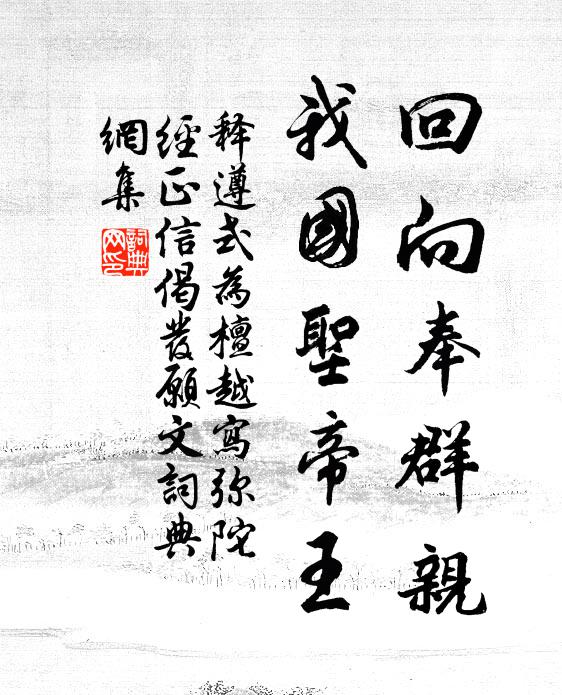 回向奉群親
我國聖帝王
释遵式為檀越寫弥陀
經正信偈發願文詞典
網集
詞典網印